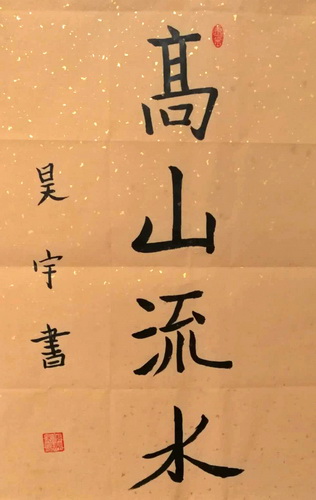 髙山流水
昊宇書